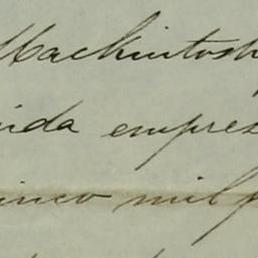 Mackintosh
uida empres
inco mil p